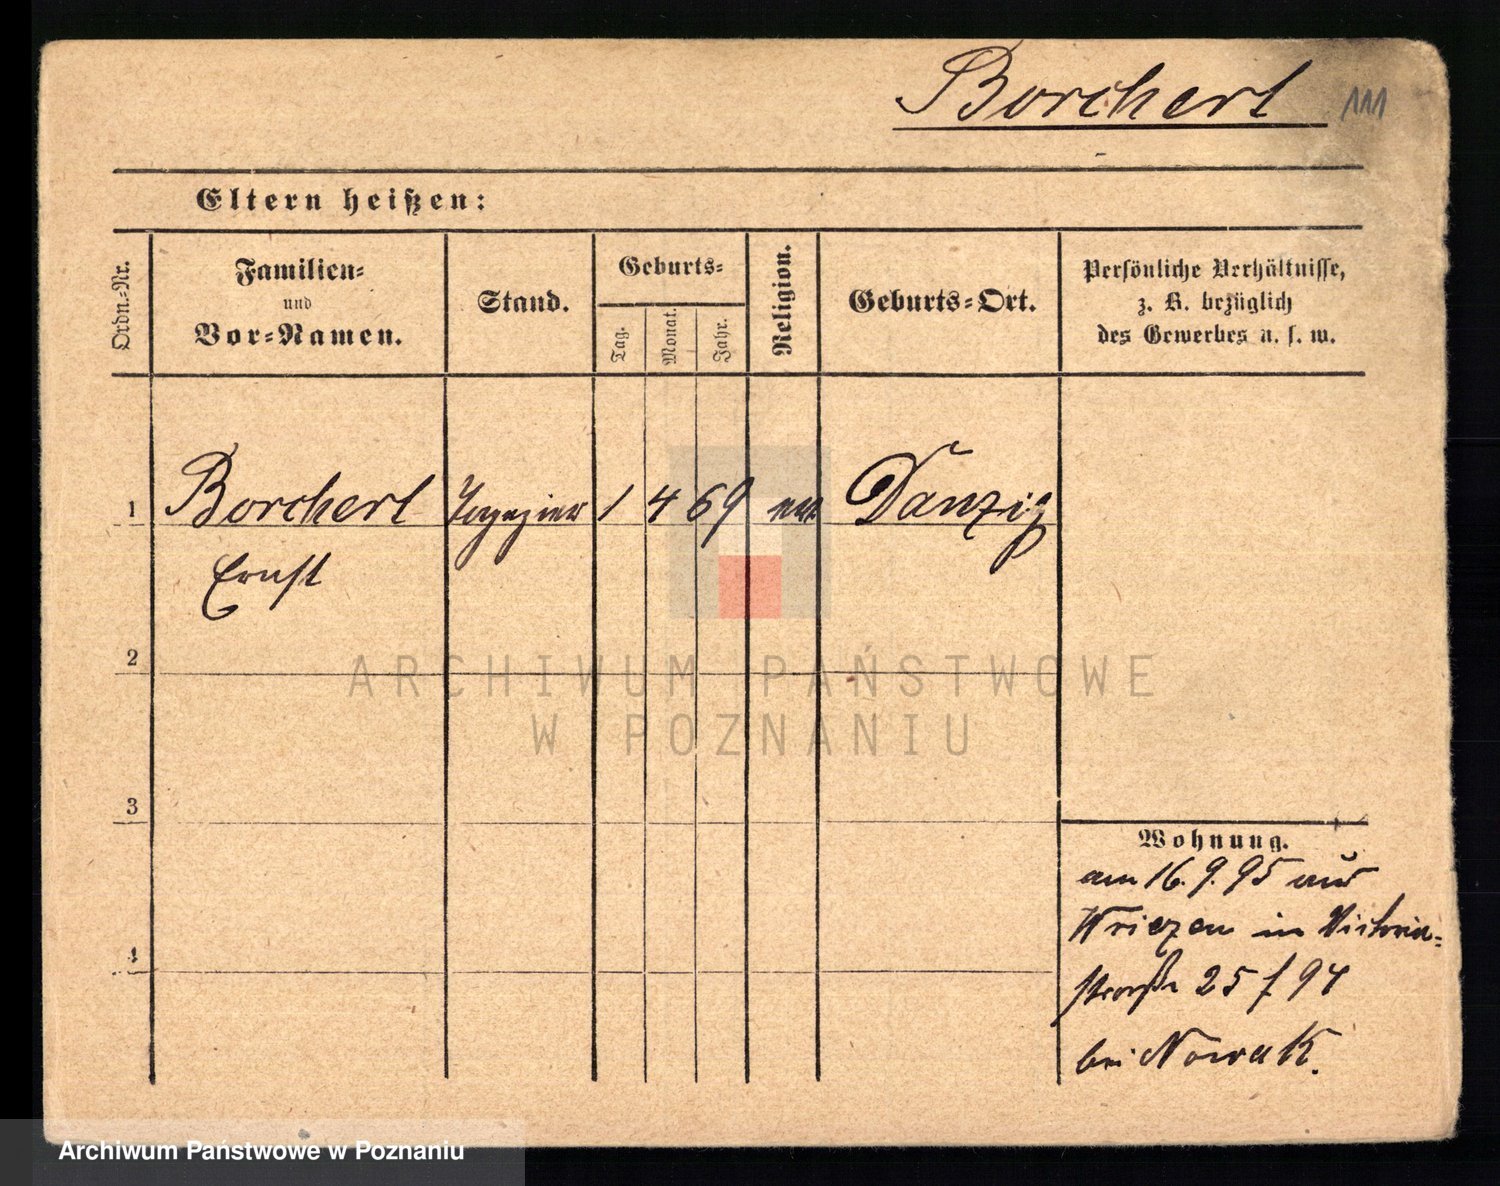 Borchert 111
Eltern heißen:
Ordn.-Nr.
Familien-
und
Vor-Namen.
Stand.
Geburts-
Tag.
Monat.
Jahr.
Religion.
Geburts-Ort.
Persönliche Verhältnisse,
z. B. bezüglich
des Gewerbes u. s. w.
1 Borchert 1 4 69 Danzig
Ernst
2
3
4
Wohnung.
am 16.9.95 aus
Wriezen in Victoria-
straße 25 f 94
bei Nowak.
ARCHIWUM PAŃSTWOWE
W POZNANIU
Archiwum Państwowe w Poznaniu